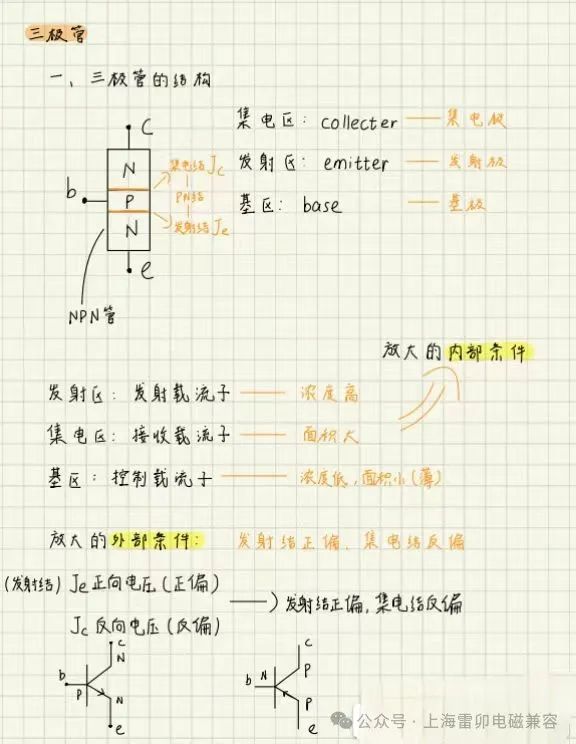 三极管
一、三极管的结构
c
集电区：collecter —— 集电极
N
集电结 Jc
发射区：emitter —— 发射极
b
P
PN结
基区：base —— 基极
N
发射结 Je
e
NPN管
放大的内部条件
发射区：发射载流子 —— 浓度高
集电区：接收载流子 —— 面积大
基区：控制载流子 —— 浓度低，面积小(薄)
放大的外部条件：发射结正偏，集电结反偏
(发射结) Je 正向电压(正偏)
——) 发射结正偏，集电结反偏
Jc 反向电压(反偏)
c
N
b
P
N
e
c
P
b
N
P
e
公众号 · 上海雷卯电磁兼容